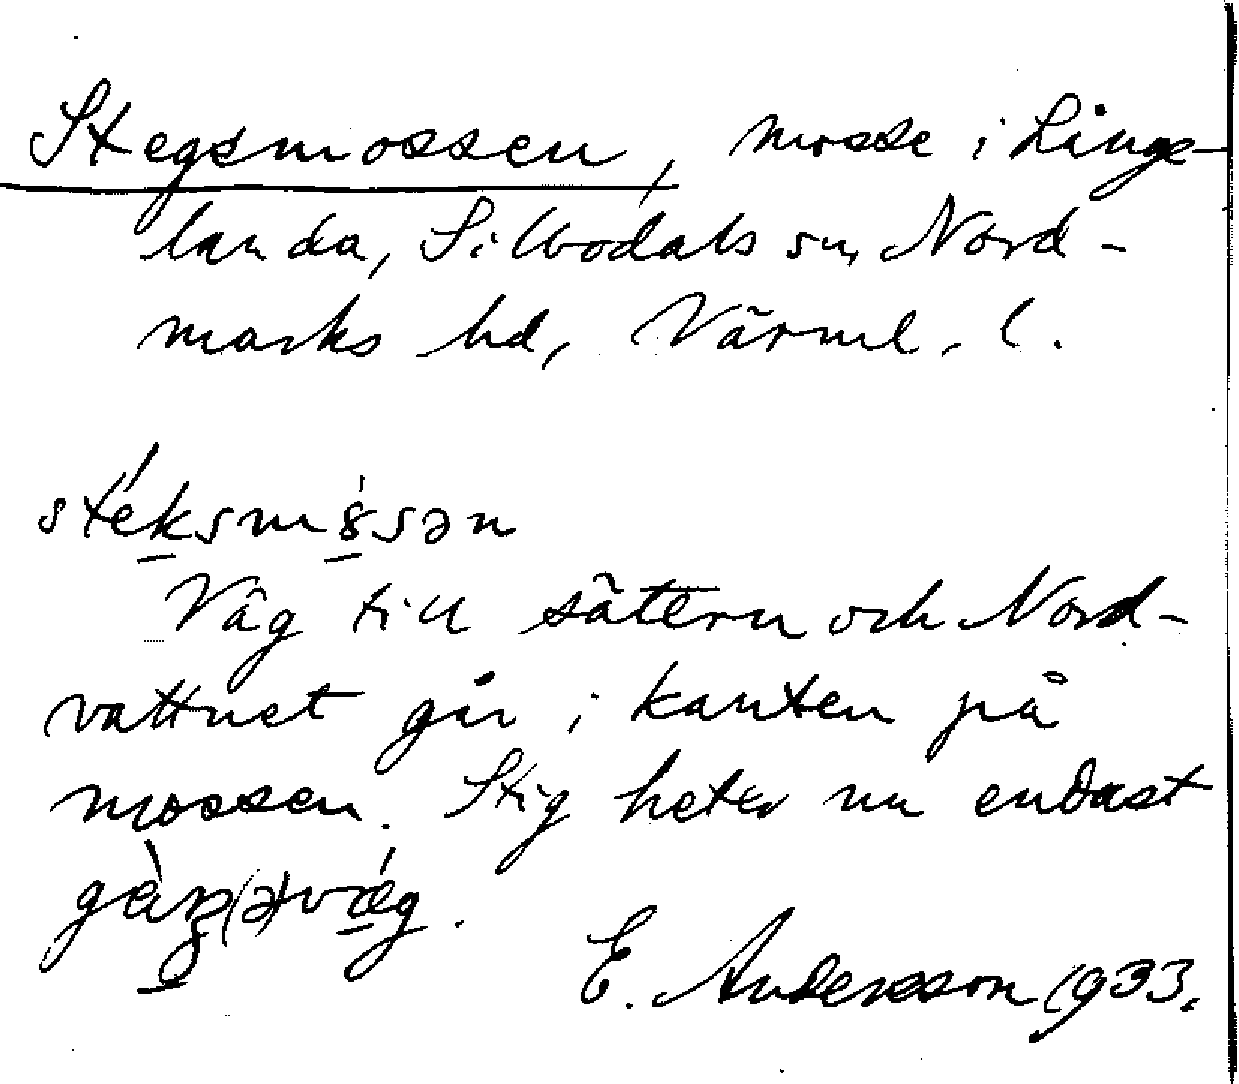 Stegsmossen, mosse i Långe-
landa, Silbodals sn, Nord-
marks hd, Värml. l.
Väg till sätern och Nord-
vattnet går i kanten på
mossen. Stig heter nu endast
E. Andersson 1933.